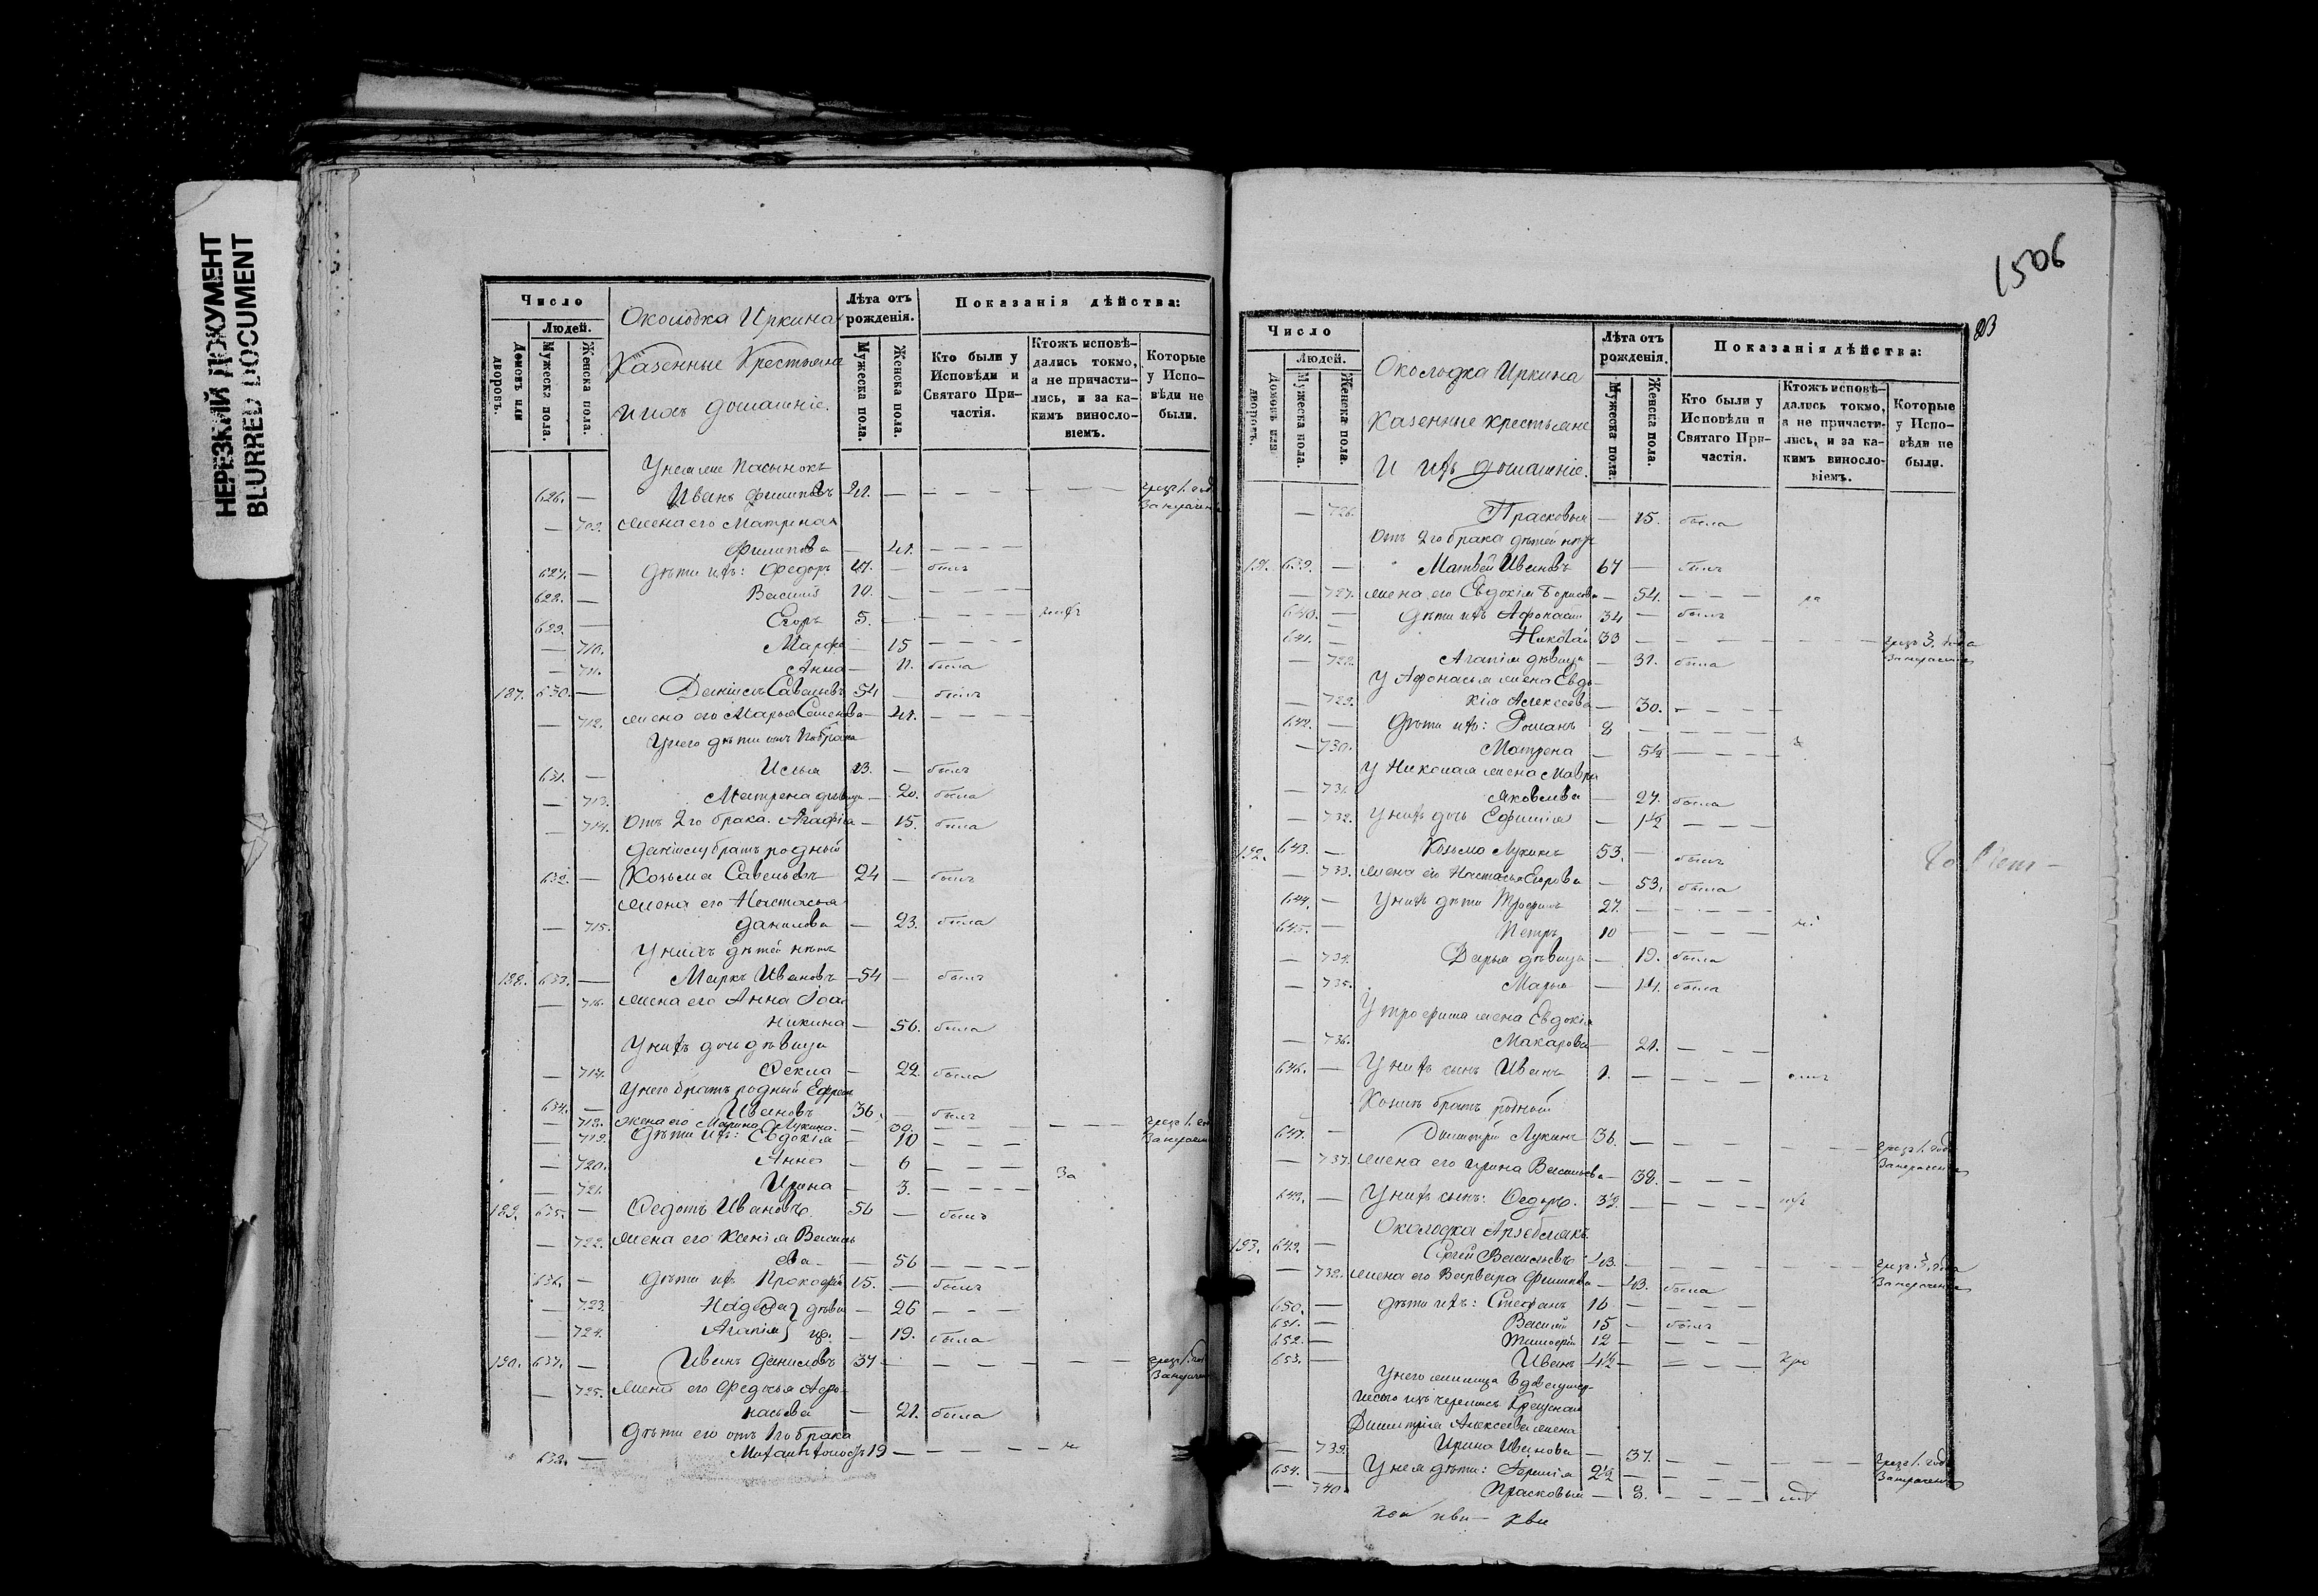 НЕРЕЗКИЙ ДОКУМЕНТ
BLURRED DOCUMENT
Число
Людей.
Домовъ или дворовъ.
Мужеска пола.
Женска пола.
Околодка Иркина
Казенные Крестьяне
и ихъ домашніе.
Лѣта отъ рожденія.
Мужеска пола.
Женска пола.
Показанія дѣйства:
Кто были у Исповѣди и Святаго Причастія.
Ктожъ исповѣдались токмо, а не причастились, и за какимъ винословіемъ.
Которые у Исповѣди не были.
У нея пасынокъ
626. — Иванъ Филиповъ — — — —
— 709. жена его Матрена
Филипова — 41. — — —
627. — Дѣти ихъ: Федоръ — былъ
628. — Василій 10. — — — —
629. — Егоръ 5. — — — —
— 710. Марфа — 15 — — —
— 711. Анна — 11. была
187. 630. — Данилъ Савельевъ 54 — былъ
— 712. жена его Марья Семенова — 41. — — —
У него дѣти отъ 1го брака
631. — Илья 23. — былъ
— 713. Матрена дѣвица — 20. была
— 714. Отъ 2го брака. Агафія — 15. была
Данилу братъ родный
632. — Козьма Савельевъ 24 — былъ
жена его Настасья
— 715. Данилова — 23. была
У нихъ дѣтей нѣтъ
188. 633. — Маркъ Ивановъ — 54 — былъ
— 716. жена его Анна Іоа-
никина — 56. была
У нихъ дочь дѣвица
— 717. Фекла — 22. была
У него братъ родный Ефремъ
634. — Ивановъ 36. — былъ
— 718. жена его Марина Лукина.
— 719. Дѣти ихъ: Евдокія — 10 — — —
— 720. Анна — 6 — — — За
— 721. Ирина — 3. — — —
189. 635. — Федотъ Ивановъ. 56 — былъ
— 722. жена его Ксенія Василь
ева — 56 — — —
636. — дѣти ихъ Прокофій 15. — былъ
— 723. Надежда дѣви — 26 — — —
— 724. Агапія цы. — 19. была
190. 637. — Иванъ Даниловъ 37 — — — —
— 725. жена его Федосья Афо-
насьева — 21. была
Дѣти его отъ 1го брака
638. — 19 — — — —
1506
Число
Людей.
Домовъ или дворовъ.
Мужеска пола.
Женска пола.
Околодка Иркина
Казенные крестьяне
и ихъ домашніе.
Лѣта отъ рожденія.
Мужеска пола.
Женска пола.
Показанія дѣйства:
Кто были у Исповѣди и Святаго Причастія.
Ктожъ исповѣдались токмо, а не причастились, и за какимъ винословіемъ.
Которые у Исповѣди не были.
— 726. Прасковья — 15. была
Отъ 2го брака дѣтей нѣтъ
191. 639. — Матвей Ивановъ 67 — былъ
— 727. жена его Евдокія Борисова — 54. — — —
640. — Дѣти ихъ Афонасій 34 — былъ
641. — Николай 33 — — — —
— 728. Агапія дѣвица — 31. была
У Афонасья жена Евдо-
— 729. кія Алексеева — 30. — — —
642. — Дѣти ихъ: Романъ 8 — — — —
— 730. Матрена — 5½ — — —
У Николая жена Мавра
— 731. Яковлева — 27. была
— 732. У нихъ дочь Ефимія — 1½ — — —
192. 643. — Козьма Лукинъ 53. — былъ
— 733. жена его Настасья Егорова — 53. была
644. — У нихъ дѣти Трофимъ 27. — — — —
645. — Петръ 10 — — — —
— 734. Дарья дѣвица — 19. была
— 735. Марья — 14. была
У Трофима жена Евдокія
— 736. Макарова — 21. — — —
646. — У нихъ сынъ Иванъ 1. — — — —
Козмѣ братъ родной
647. — Димитрій Лукинъ 36. — — —
— 737. жена его Ирина Васильева — 38. — — —
648. — У нихъ сынъ: Федоръ. 3½ — — — —
Околодка
193. 649. — Сергей Васильевъ 43. — — — —
— 738. жена его Варвара Филипова — 43. была
650. — дѣти ихъ: Стефанъ 16 — — — —
651. — Василій 15 — былъ
652. — Тимофей 12 — — — —
653. — Иванъ 4½ — — — —
Димитрія Алексеева жена
— 739. Ирина Иванова — 37. — — —
654. — У нея дѣти: 2½ — — — —
— 740. Прасковья — 8. — — —